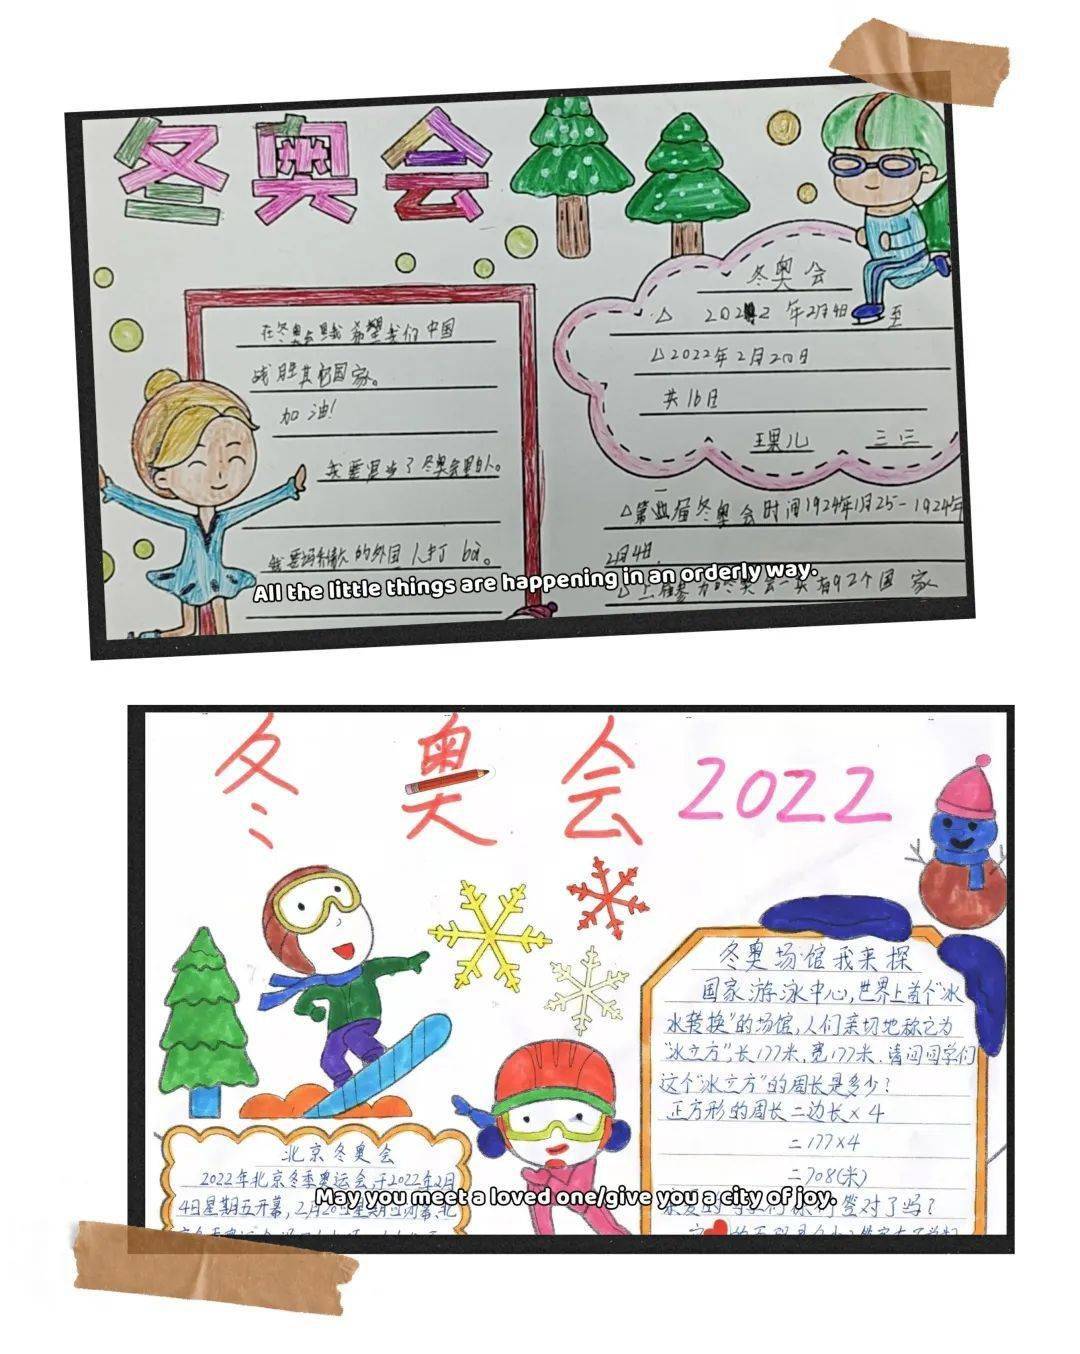 冬奥会
在冬奥会里我希望我们中国
战胜其它国家。
加油!
我要是当了冬奥会里的人。
的外国人打 bài。
冬奥会
△ 2022 年2月4日 至
△2022年2月20日
共16日
三.三
△第一届冬奥会时间1924年1月25-1924年
2月4日.
92个国家
All the little things are happening in an orderly way.
冬奥会 2022
冬奥场馆我来探
国家游泳中心,世界上首个“冰
水转换”的场馆,人们亲切地称它为
“冰立方”,长177米,宽177米.请问同学们
这个“冰立方”的周长是多少?
正方形的周长=边长×4
=177×4
=708(米)
答对了吗?
北京冬奥会
2022年北京冬季奥运会于2022年2月
4日星期五开幕,2月20日星期日闭幕.北
May you meet a loved one/give you a city of joy.